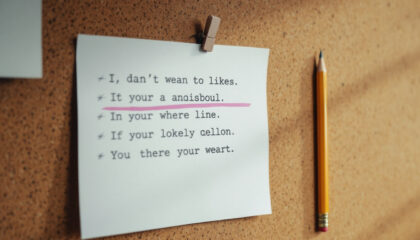 I, dan't wean to likes.
It your a anɑisboul.
In your where line.
If your lokely cellon.
You there your weart.